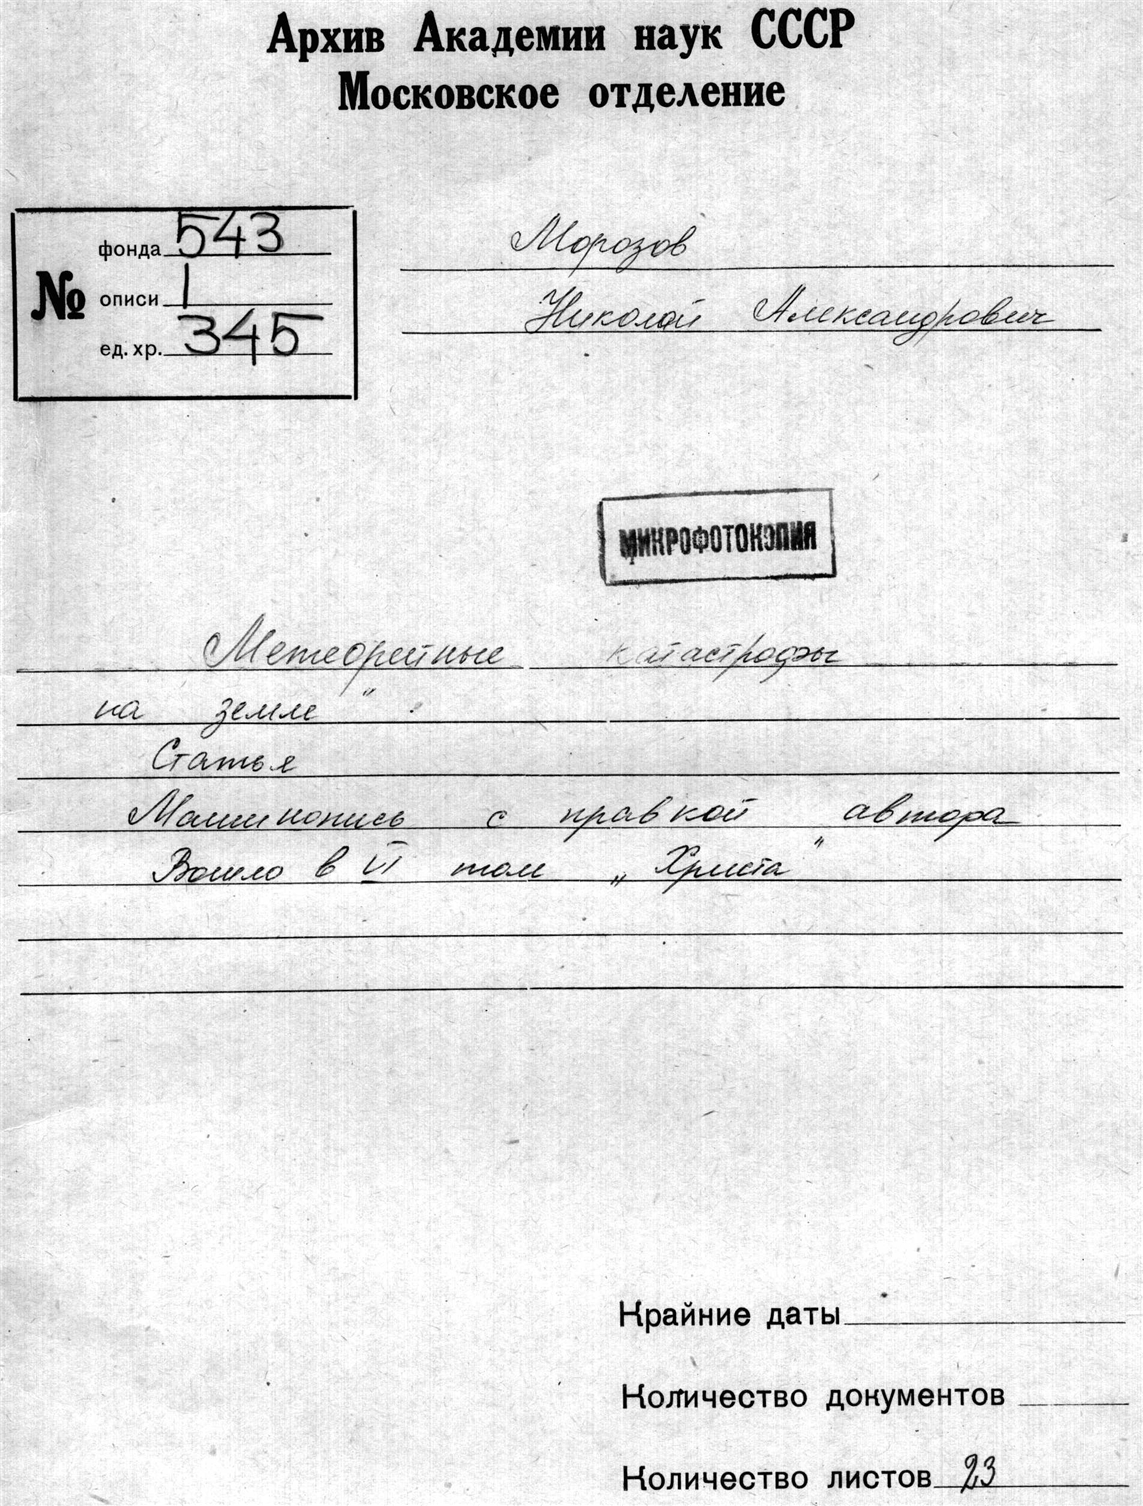 Архив Академии наук СССР
Московское отделение
№
фонда 543
описи 1
ед. хр. 345
Морозов
Николай Александрович
МИКРОФОТОКОПИЯ
Метеоритные катастрофы
на земле"
Статья
Машинопись с правкой автора
Вошло в VI том „Христа"
Крайние даты
Количество документов
Количество листов 23